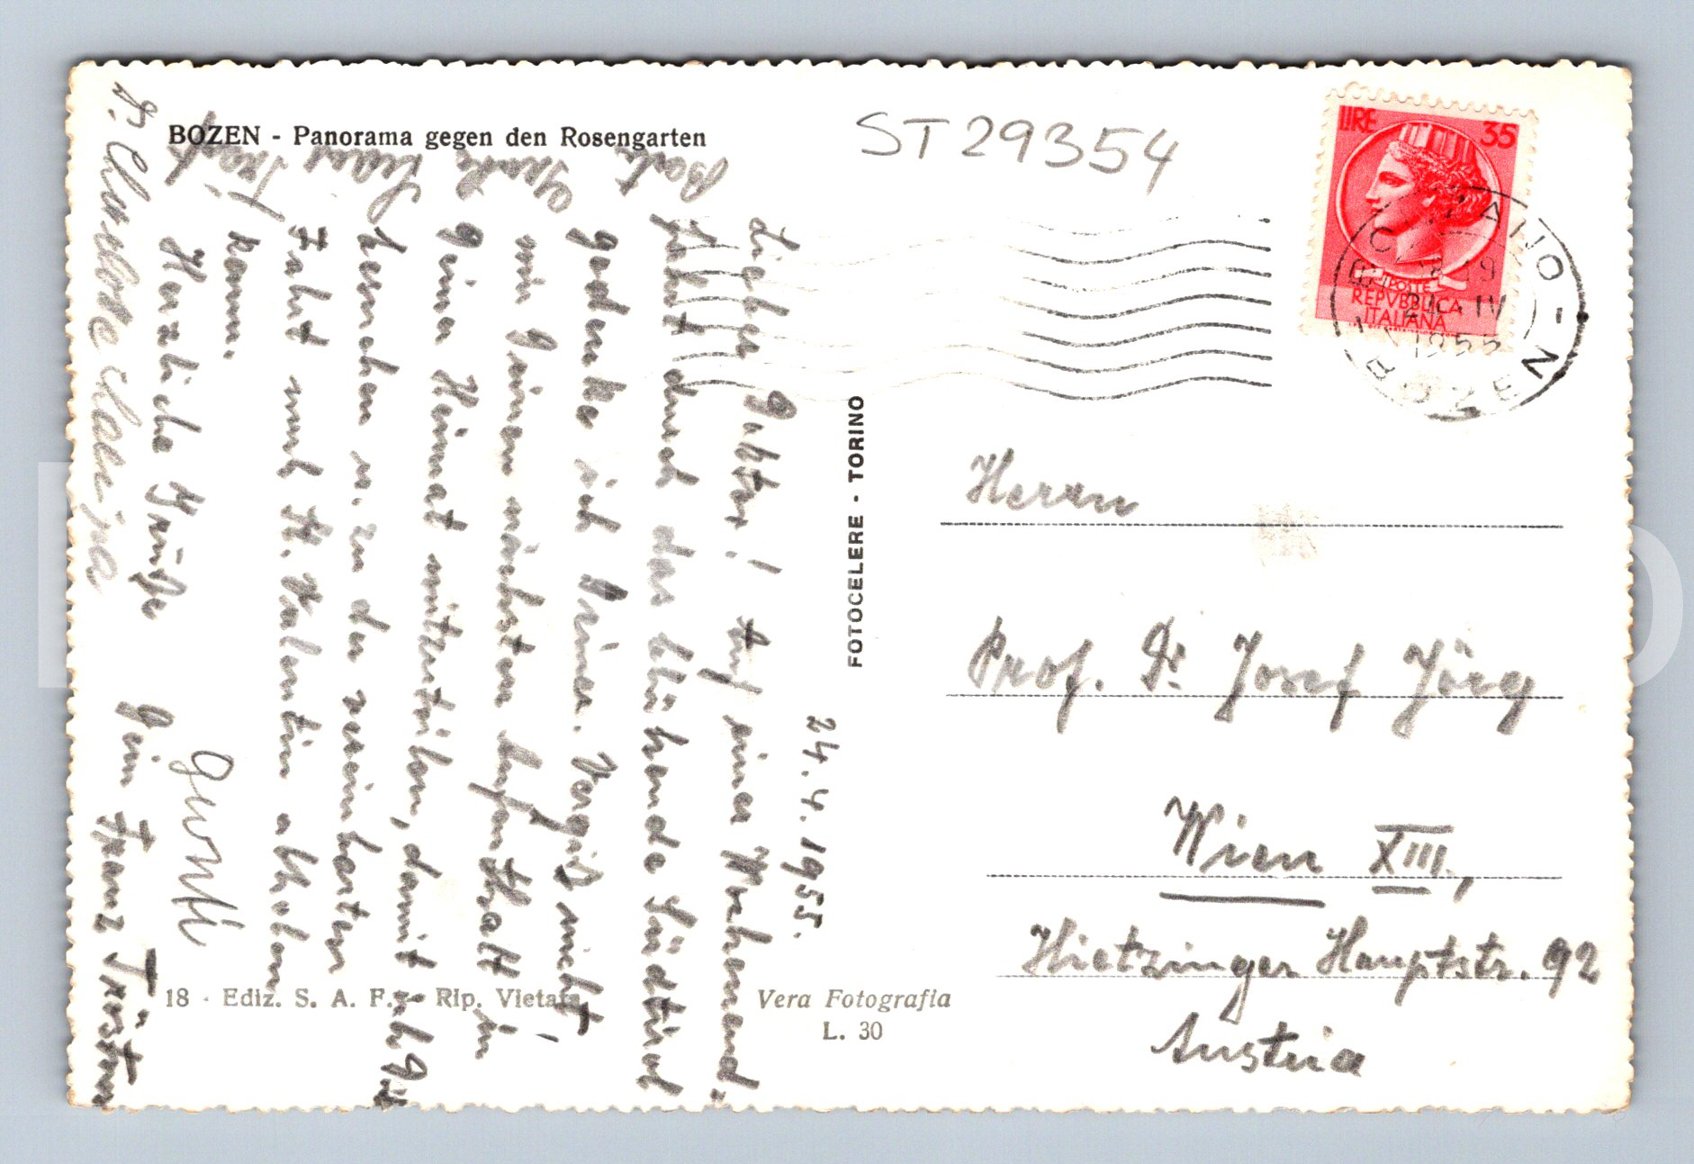 BOZEN - Panorama gegen den Rosengarten
ST 29354
LIRE 35
POSTE
REPVBBLICA
ITALIANA
BOLZANO - BOZEN
1955
24. 4. 1955.
Lieber Doktor! Auf einer Wochenend-
fahrt durch das blühende Südtirol
gedenke ich Deiner. Vergiß nicht,
mir Deinen nächsten Aufenthalt in
Deiner Heimat mitzuteilen, damit ich Dich
u. zu der vereinbarten
Fahrt nach St. Valentin abholen
kann.
Herzliche Grüße
Dein Franz
FOTOCELERE - TORINO
Herrn
Prof. Dr. Josef Jörg
Wien XIII.,
Hietzinger Hauptstr. 92
Austria
18 - Ediz. S. A. F. - Rip. Vietata
Vera Fotografia
L. 30